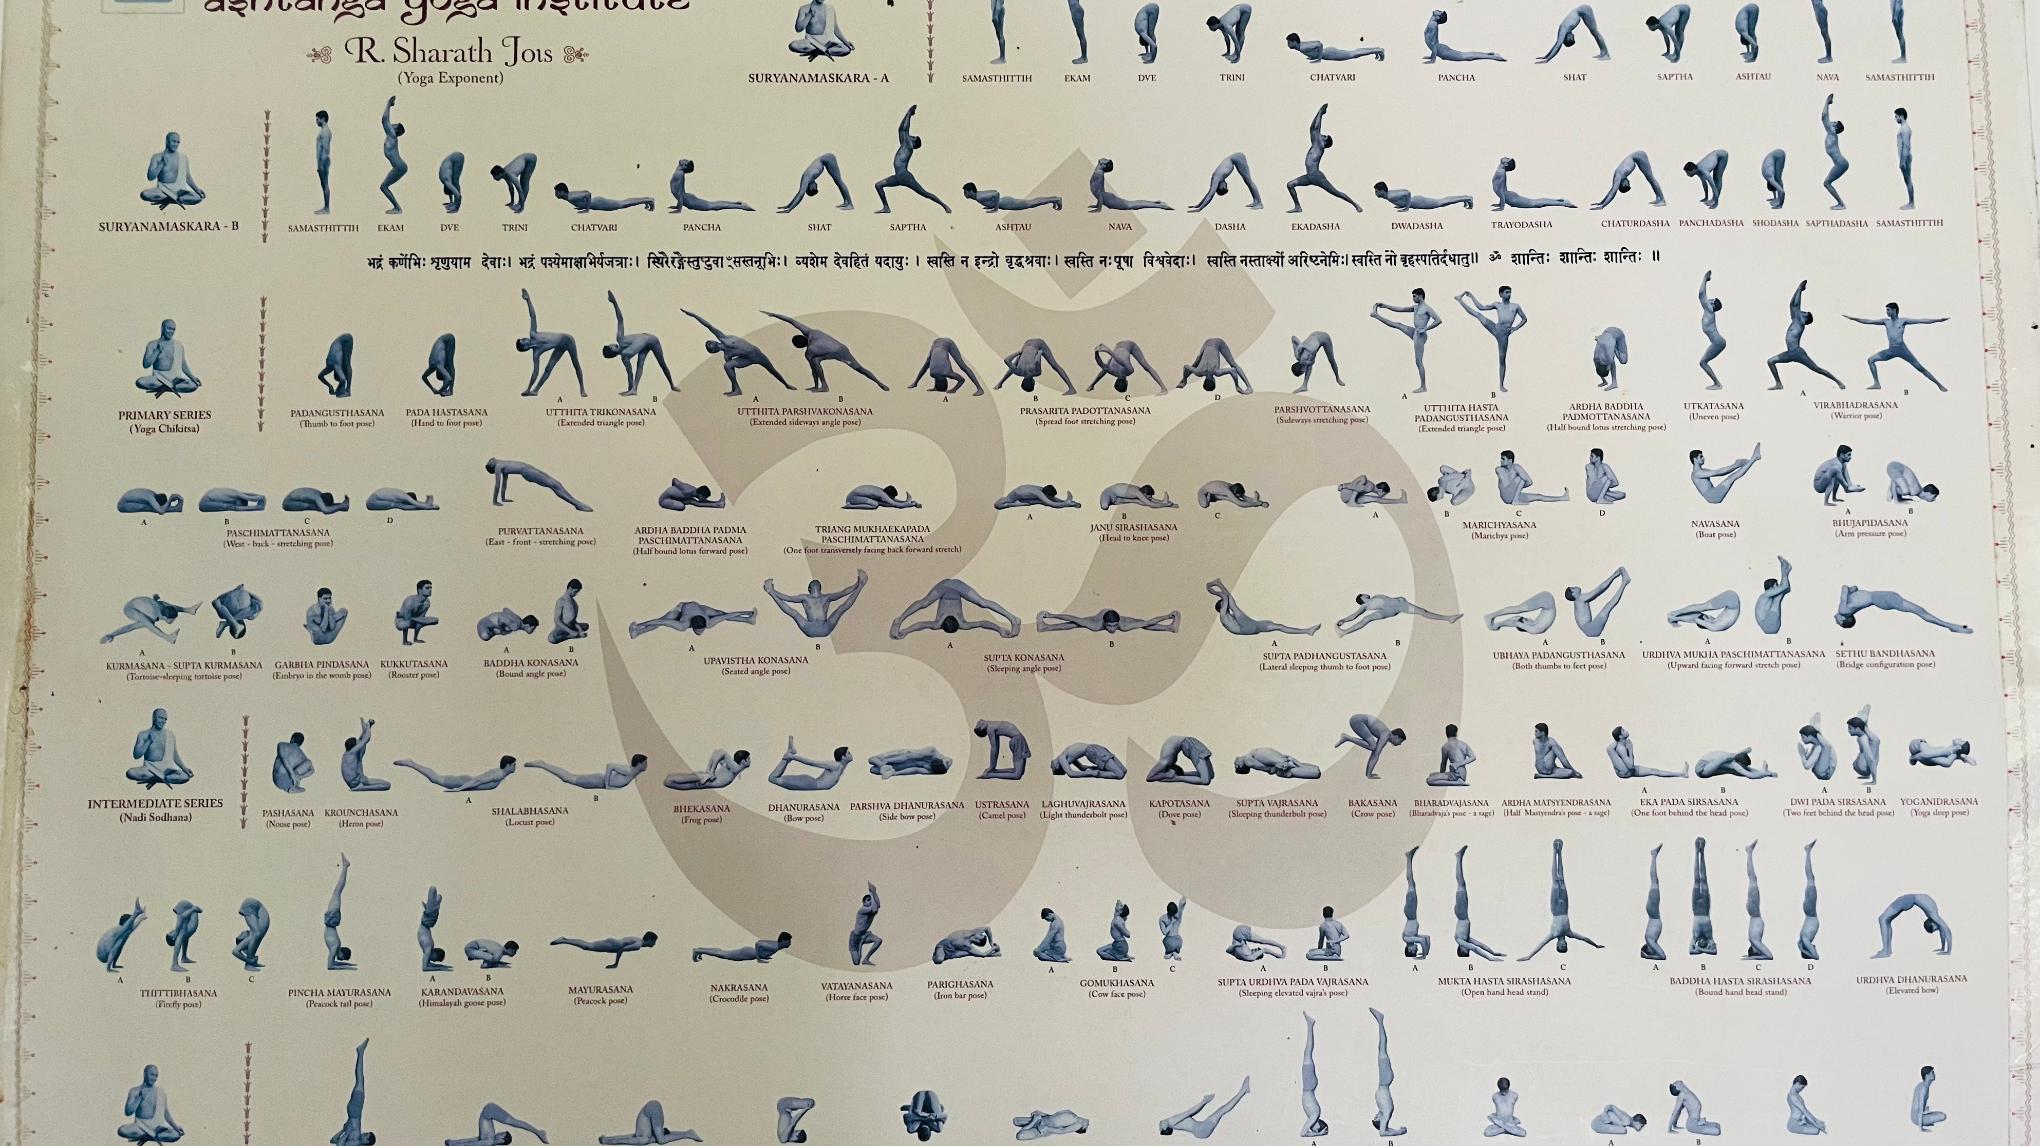 ashtanga yoga institute
R. Sharath Jois
(Yoga Exponent)
SURYANAMASKARA - A
SAMASTHITTIH EKAM DVE TRINI CHATVARI PANCHA SHAT SAPTHA ASHTAU NAVA SAMASTHITTIH
SURYANAMASKARA - B
SAMASTHITTIH EKAM DVE TRINI CHATVARI PANCHA SHAT SAPTHA ASHTAU NAVA DASHA EKADASHA DWADASHA TRAYODASHA CHATURDASHA PANCHADASHA SHODASHA SAPTHADASHA SAMASTHITTIH
भद्रं कर्णेभिः श्रृणुयाम देवाः। भद्रं पश्येमाक्षभिर्यजत्राः। स्थिरैरङ्गैस्तुष्टुवाꣳसस्तनूभिः। व्यशेम देवहितं यदायुः । स्वस्ति न इन्द्रो वृद्धश्रवाः। स्वस्ति नःपूषा विश्ववेदाः। स्वस्ति नस्तार्क्ष्यो अरिष्टनेमिः। स्वस्ति नो बृहस्पतिर्दधातु॥ ॐ शान्तिः शान्तिः शान्तिः ॥
PRIMARY SERIES
(Yoga Chikitsa)
PADANGUSTHASANA
(Thumb to foot pose)
PADA HASTASANA
(Hand to foot pose)
A B
UTTHITA TRIKONASANA
(Extended triangle pose)
A B
UTTHITA PARSHVAKONASANA
(Extended sideways angle pose)
A B C D
PRASARITA PADOTTANASANA
(Spread foot stretching pose)
PARSHVOTTANASANA
(Sideways stretching pose)
A B
UTTHITA HASTA
PADANGUSTHASANA
(Extended triangle pose)
ARDHA BADDHA
PADMOTTANASANA
(Half bound lotus stretching pose)
UTKATASANA
(Uneven pose)
A B
VIRABHADRASANA
(Warrior pose)
A B C D
PASCHIMATTANASANA
(West - back - stretching pose)
PURVATTANASANA
(East - front - stretching pose)
ARDHA BADDHA PADMA
PASCHIMATTANASANA
(Half bound lotus forward pose)
TRIANG MUKHAEKAPADA
PASCHIMATTANASANA
(One foot transversely facing back forward stretch)
A B C
JANU SIRASHASANA
(Head to knee pose)
A B C D
MARICHYASANA
(Marichya pose)
NAVASANA
(Boat pose)
A B
BHUJAPIDASANA
(Arm pressure pose)
A B
KURMASANA - SUPTA KURMASANA
(Tortoise-sleeping tortoise pose)
GARBHA PINDASANA
(Embryo in the womb pose)
KUKKUTASANA
(Rooster pose)
A B
BADDHA KONASANA
(Bound angle pose)
A B
UPAVISTHA KONASANA
(Seated angle pose)
A B
SUPTA KONASANA
(Sleeping angle pose)
A B
SUPTA PADHANGUSTASANA
(Lateral sleeping thumb to foot pose)
A B
UBHAYA PADANGUSTHASANA
(Both thumbs to feet pose)
A B
URDHVA MUKHA PASCHIMATTANASANA
(Upward facing forward stretch pose)
SETHU BANDHASANA
(Bridge configuration pose)
INTERMEDIATE SERIES
(Nadi Sodhana)
PASHASANA
(Noose pose)
KROUNCHASANA
(Heron pose)
A B
SHALABHASANA
(Locust pose)
BHEKASANA
(Frog pose)
DHANURASANA
(Bow pose)
PARSHVA DHANURASANA
(Side bow pose)
USTRASANA
(Camel pose)
LAGHUVAJRASANA
(Light thunderbolt pose)
KAPOTASANA
(Dove pose)
SUPTA VAJRASANA
(Sleeping thunderbolt pose)
BAKASANA
(Crow pose)
BHARADVAJASANA
(Bharadvaja's pose - a sage)
ARDHA MATSYENDRASANA
(Half Mastyendra's pose - a sage)
A B
EKA PADA SIRSASANA
(One foot behind the head pose)
A B
DWI PADA SIRSASANA
(Two feet behind the head pose)
YOGANIDRASANA
(Yoga sleep pose)
A B C
THITTIBHASANA
(Firefly pose)
PINCHA MAYURASANA
(Peacock tail pose)
A B
KARANDAVASANA
(Himalayah goose pose)
MAYURASANA
(Peacock pose)
NAKRASANA
(Crocodile pose)
VATAYANASANA
(Horse face pose)
PARIGHASANA
(Iron bar pose)
A B C
GOMUKHASANA
(Cow face pose)
A B
SUPTA URDHVA PADA VAJRASANA
(Sleeping elevated vajra's pose)
A B C
MUKTA HASTA SIRASHASANA
(Open hand head stand)
A B C D
BADDHA HASTA SIRASHASANA
(Bound hand head stand)
URDHVA DHANURASANA
(Elevated bow)
A B A B